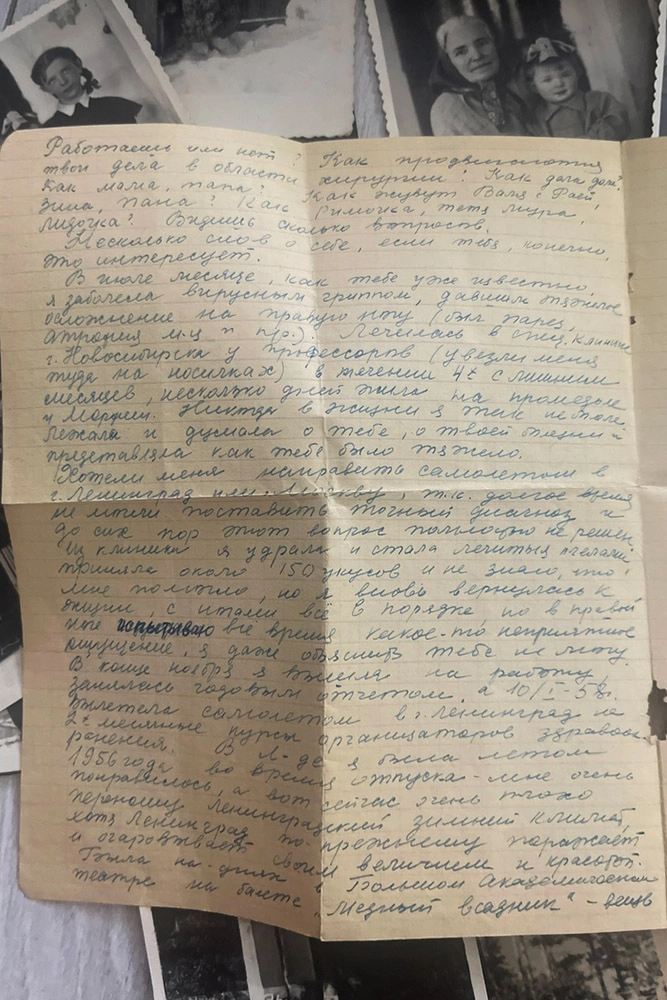 Работаешь или нет? Как продвигаются
твои дела в области хирургии? Как дела дома?
Как мама, папа? Как живут Валя, Рая,
Зина, Папа? Как Римочка, тетя Шура,
Лидочка? Видишь сколько вопросов.
Несколько слов о себе, если тебя, конечно,
это интересует.
В июле месяце, как тебе уже известно,
я заболела вирусным гриппом, давшим тяжелое
осложнение на правую ногу (был парез,
атрофия м-ц и пр.). Лечилась в клинике
г. Новосибирска у профессоров (увезли меня
туда на носилках) в течении 4х с лишним
месяцев, несколько дней жила на промедоле
и морфии. Никогда в жизни я так не болела.
Лежала и думала о тебе, о твоей
представляла как тебе было тяжело.
Хотели меня направить самолетом в
г. Ленинград или Москву, т.к. долгое время
не могли поставить точный диагноз и
до сих пор этот вопрос полностью не решен.
Из клиники я удрала и стала лечиться пчелами
приняла около 150 укусов и не знаю, что
мне помогло, но я вновь вернулась к
жизни, с ногами всё в порядке, но в правой
все время какое-то неприятное
ощущение, я даже объяснить тебе не могу.
В конце ноября я вышла на работу,
занялась годовым отчетом, а 10/I-58г.
вылетела самолетом в г. Ленинград на
2х месячные курсы организаторов здравоох-
ранения. В Л-де я была летом
1956 года во время отпуска - мне очень
понравилось, а вот сейчас очень плохо
переношу Ленинградский зимний климат,
хотя Ленинград по-прежнему поражает
и очаровывает своим величием и красотой.
Была на-днях в Большом Академическом
театре на балете "Медный всадник" - вещь